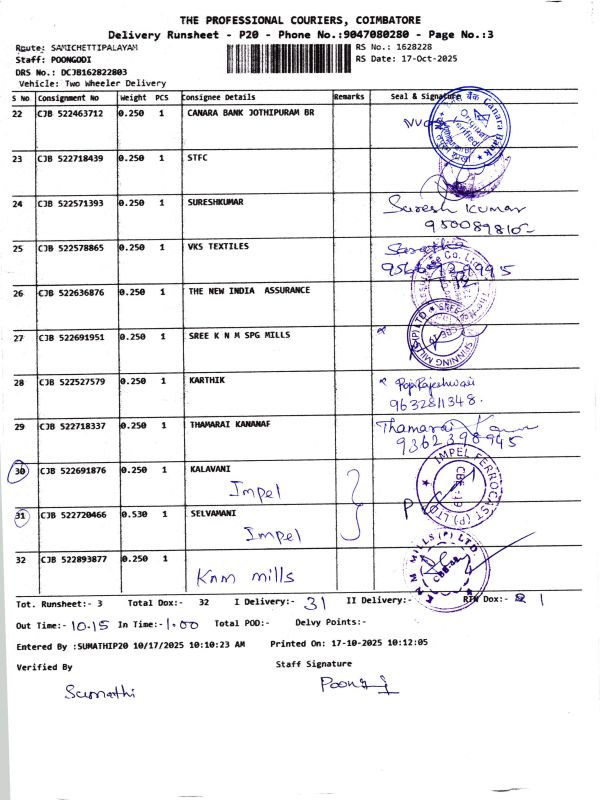 THE PROFESSIONAL COURIERS, COIMBATORE
Delivery Runsheet - P20 - Phone No.:9047080280 - Page No.:3
Route: SAMICHETTIPALAYAM RS No.: 1628228
Staff: POONGODI RS Date: 17-Oct-2025
DRS No.: DCJB162822803
Vehicle: Two Wheeler Delivery
S No Consignment No Weight PCS Consignee Details Remarks Seal & Signature
22 CJB 522463712 0.250 1 CANARA BANK JOTHIPURAM BR
Canara Bank
23 CJB 522718439 0.250 1 STFC
24 CJB 522571393 0.250 1 SURESHKUMAR Suresh Kumar
25 CJB 522578865 0.250 1 VKS TEXTILES
26 CJB 522636876 0.250 1 THE NEW INDIA ASSURANCE
27 CJB 522691951 0.250 1 SREE K N M SPG MILLS
SPINNING MILLS (P) LTD
28 CJB 522527579 0.250 1 KARTHIK RajaRajeshwari
9632811348.
29 CJB 522718337 0.250 1 THAMARAI KANANAF Thamarai
9362398945
30 CJB 522691876 0.250 1 KALAVANI
Impel
IMPEL FERROCAST (P) LTD
31 CJB 522720466 0.530 1 SELVAMANI
Impel
32 CJB 522893877 0.250 1
Knm mills
K N M MILLS (P) LTD
Tot. Runsheet:- 3 Total Dox:- 32 I Delivery:- 31 II Delivery:- RTN Dox:- 1
Out Time:- 10.15 In Time:- 1.00 Total POD:- Delvy Points:-
Entered By :SUMATHIP20 10/17/2025 10:10:23 AM Printed On: 17-10-2025 10:12:05
Verified By Staff Signature
Sumathi